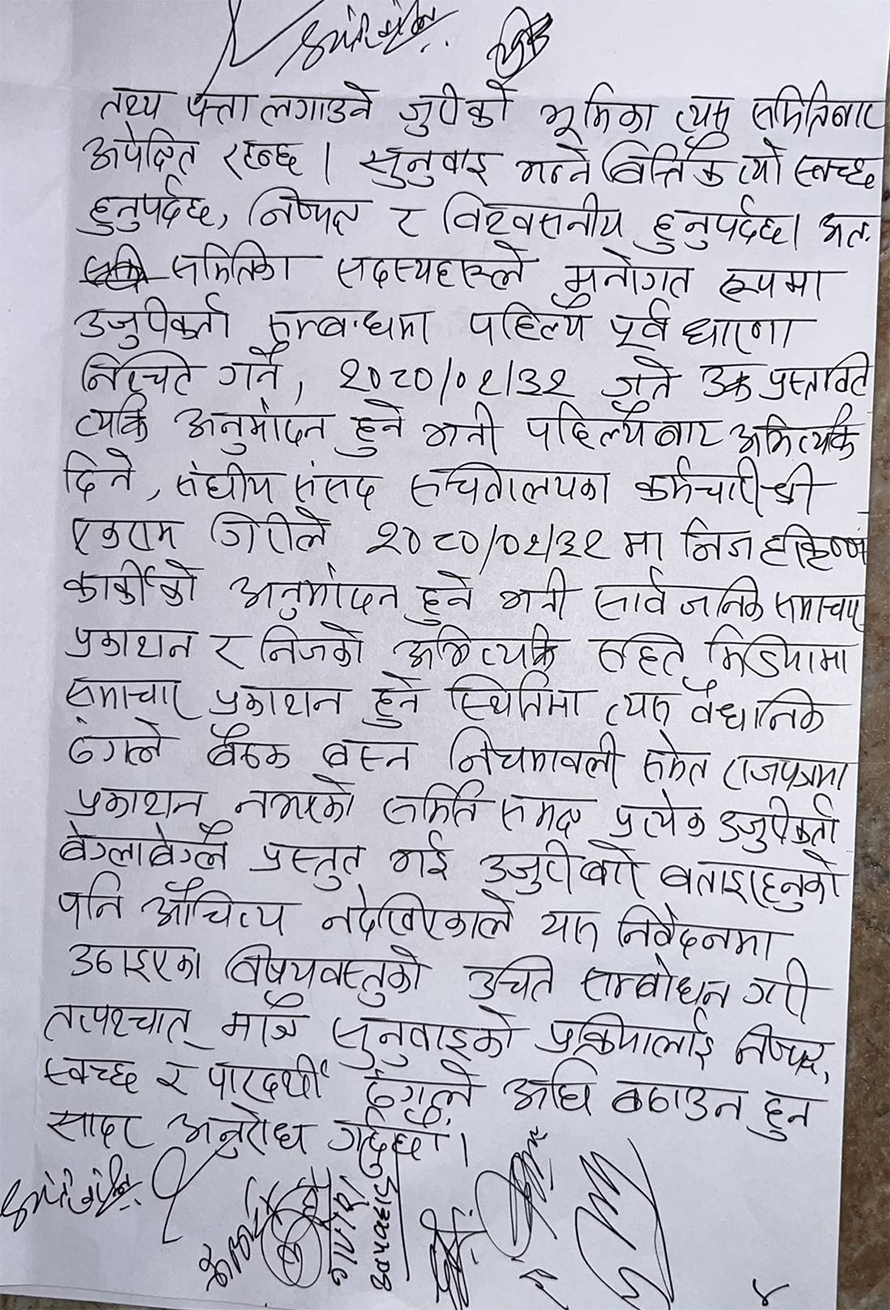 तथ्य पत्ता लगाउने जुरीको भूमिका त्यस समितिबाट
अपेक्षित रहन्छ । सुनुवाइ भन्ने बित्तिकै त्यो स्वच्छ
हुनुपर्दछ, निष्पक्ष र विश्वसनीय हुनुपर्दछ। अतः
समितिका सदस्यहरूले मनोगत रूपमा
उजुरीकर्ता सम्बन्धमा पहिल्यै पूर्व धारणा
निश्चित गर्ने, २०८०/०२/३२ गते उक्त प्रस्तावित
व्यक्ति अनुमोदन हुने भनी पहिल्यैबाट अभिव्यक्ति
दिने, संघीय संसद सचिवालयका कर्मचारी श्री
एकराम गिरीले २०८०/०२/३२ मा निज हरिकृष्ण
कार्कीको अनुमोदन हुने भनी सार्वजनिक समाचार
प्रकाशन र निजको अभिव्यक्ति सहित मिडियामा
समाचार प्रकाशन हुने स्थितिमा त्यस वैधानिक
ढंगले बैठक बस्न नियमावली समेत राजपत्रमा
प्रकाशन नभएको समिति समक्ष प्रत्येक उजुरीकर्ता
बेग्लाबेग्लै प्रस्तुत भई उजुरी बारे बताइरहनुको
पनि औचित्य नदेखिएकाले यस निवेदनमा
उठाइएका विषयवस्तुको उचित सम्बोधन गरी
तत्पश्चात् मात्रै सुनुवाइको प्रक्रियालाई निष्पक्ष,
स्वच्छ र पारदर्शी ढंगले अघि बढाउन हुन
सादर अनुरोध गर्दछौं ।
४